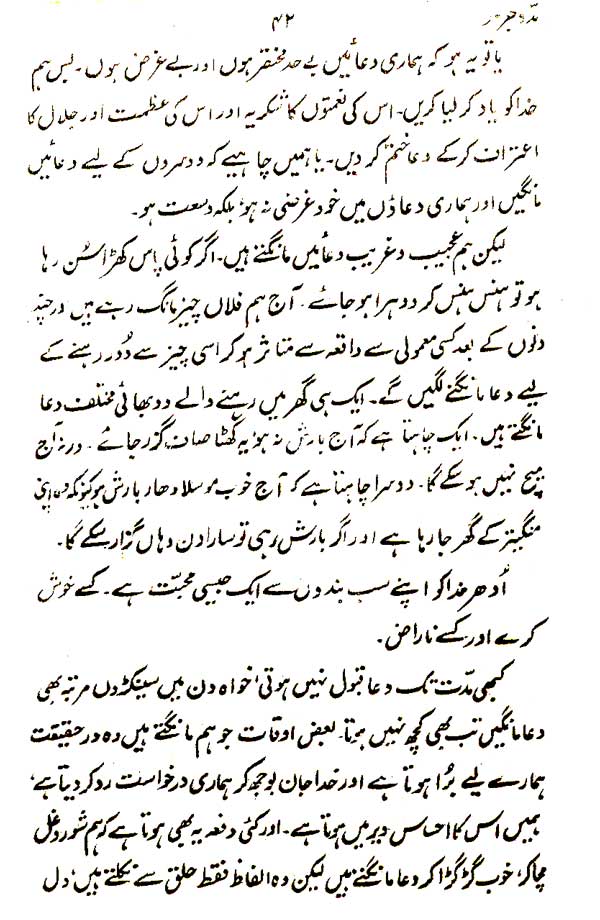 مدّوجزر
۴۲
یا تو یہ ہو کہ ہماری دعائیں بے حد مختصر ہوں اور بے غرض ہوں۔ بس ہم
خدا کو یاد کر لیا کریں۔ اس کی نعمتوں کا شکریہ اور اس کی عظمت اور جلال کا
اعتراف کر کے دعا ختم کر دیں۔ یا ہمیں چاہیے کہ دوسروں کے لیے دعائیں
مانگیں اور ہماری دعاؤں میں خود غرضی نہ ہو، بلکہ وسعت ہو۔
لیکن ہم عجیب و غریب دعائیں مانگتے ہیں۔ اگر کوئی پاس کھڑا سُن رہا
ہو تو ہنس ہنس کر دوہرا ہو جائے۔ آج ہم فلاں چیز مانگ رہے ہیں اور چند
دنوں کے بعد کسی معمولی سے واقعہ سے متاثر ہو کر اسی چیز سے دُور رہنے کے
لیے دعا مانگنے لگیں گے۔ ایک ہی گھر میں رہنے والے دو بھائی مختلف دعا
مانگتے ہیں۔ ایک چاہتا ہے کہ آج بارش نہ ہو، یہ گھٹا صاف گزر جائے۔ ورنہ آج
میچ نہیں ہو سکے گا۔ دوسرا چاہتا ہے کہ آج خوب موسلا دھار بارش ہو کیونکہ وہ اپنی
منگیتر کے گھر جا رہا ہے اور اگر بارش رہی تو سارا دن وہاں گزار سکے گا۔
اُدھر خدا کو اپنے سب بندوں سے ایک جیسی محبّت ہے۔ کسے خوش
کرے اور کسے ناراض۔
کبھی مدّت تک دعا قبول نہیں ہوتی، خواہ دن میں سینکڑوں مرتبہ بھی
دعا مانگیں تب بھی کچھ نہیں ہوتا۔ بعض اوقات جو ہم مانگتے ہیں وہ درحقیقت
ہمارے لیے بُرا ہوتا ہے اور خدا جان بوجھ کر ہماری درخواست رد کر دیتا ہے،
ہمیں اس کا احساس دیر میں ہوتا ہے۔ اور کئی دفعہ یہ بھی ہوتا ہے کہ ہم شور و غل
مچا کر، خوب گڑگڑا کر دعا مانگتے ہیں لیکن وہ الفاظ فقط حلق سے نکلتے ہیں، دل